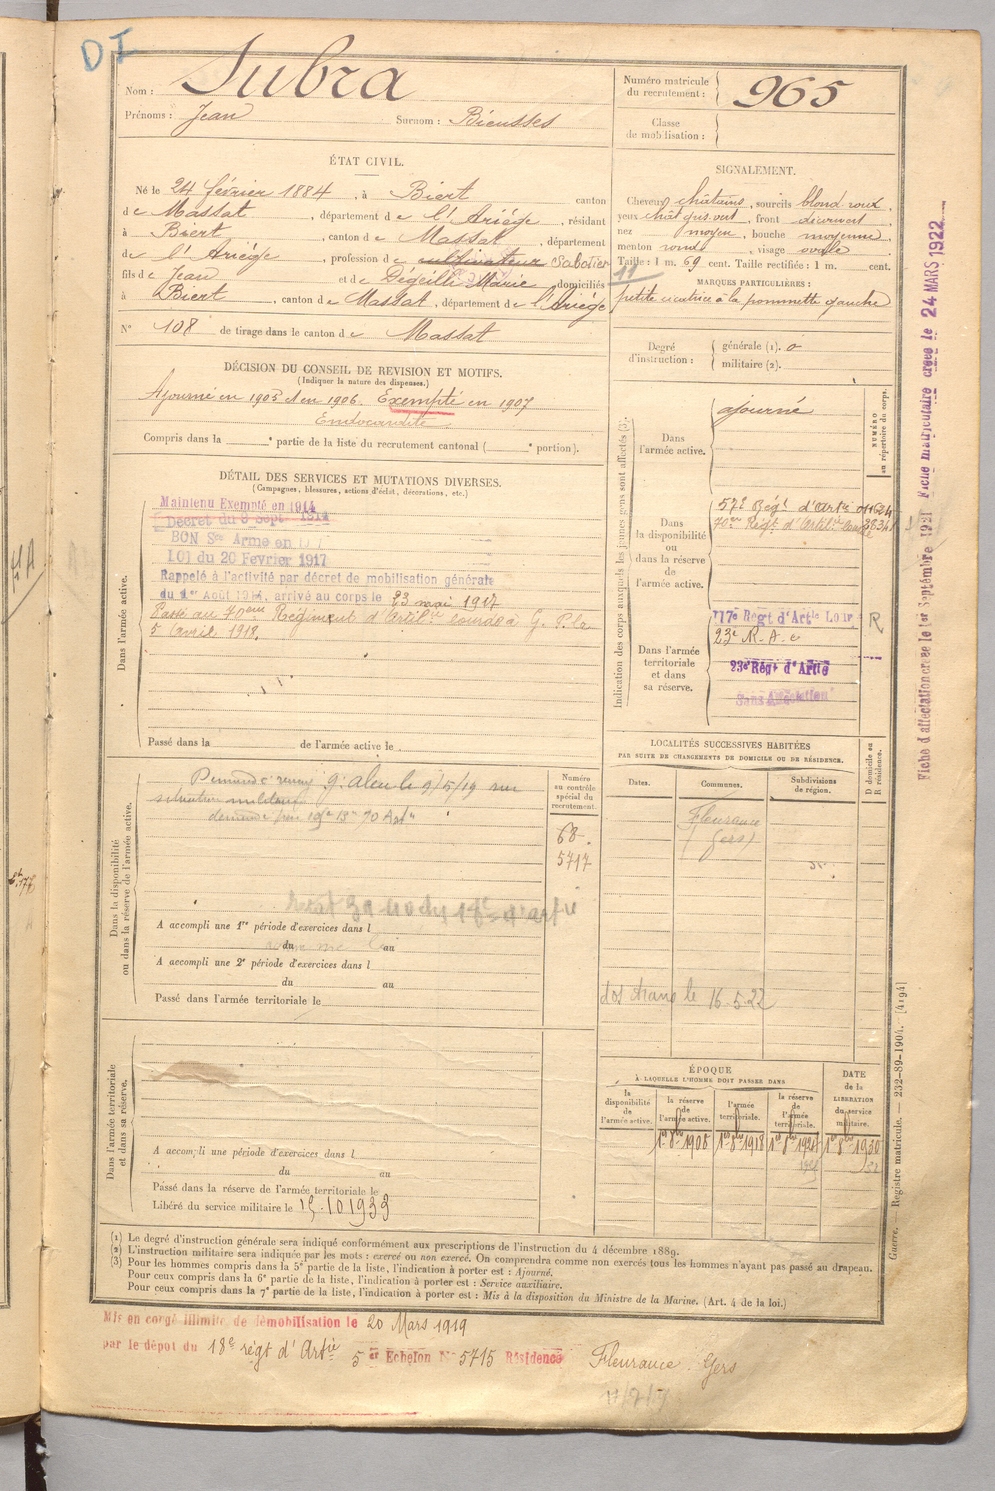 DI
Nom : Subra
Prénoms : Jean Surnom : Bieusses
Numéro matricule du recrutement : 965
Classe de mobilisation :
ÉTAT CIVIL.
Né le 24 février 1884, à Biert canton
de Massat, département de l'Ariège, résidant
à Biert, canton de Massat, département
de l'Ariège, profession de cultivateur Sabotier
fils de Jean et de Dégeille Marie domiciliés
à Biert, canton de Massat, département de l'Ariège
N° 108 de tirage dans le canton de Massat
SIGNALEMENT.
Cheveux châtains, sourcils blond roux,
yeux chât gris vert, front découvert
nez moyen, bouche moyenne
menton rond, visage ovale
Taille : 1 m. 69 cent. Taille rectifiée : 1 m. cent.
11
MARQUES PARTICULIÈRES :
petite cicatrice à la pommette gauche
Degré d'instruction : générale (1). 0
militaire (2).
DÉCISION DU CONSEIL DE REVISION ET MOTIFS.
(Indiquer la nature des dispenses.)
Ajourné en 1905 et en 1906. Exempté en 1907
Endocardite
Compris dans la e partie de la liste du recrutement cantonal ( e portion).
DÉTAIL DES SERVICES ET MUTATIONS DIVERSES.
(Campagnes, blessures, actions d'éclat, décorations, etc.)
Dans l'armée active.
Maintenu Exempté en 1914
Décret du 9 Sept 1914
BON Sce Armé en
LOI du 20 Fevrier 1917
Rappelé à l'activité par décret de mobilisation générale
du 1er Août 1914, arrivé au corps le 23 mai 1917
Passé au 70eme Régiment d'Artil. lourde à G. P. le
5 Avril 1918.
Passé dans la de l'armée active le
Indication des corps auxquels les jeunes gens sont affectés (3).
NUMÉRO au répertoire du corps.
Dans l'armée active.
ajourné
Dans la disponibilité ou dans la réserve de l'armée active.
57e Régt d'Artie 011624
70er Régt d'Artil. Lourde
Dans l'armée territoriale et dans sa réserve.
117e Régt d'Artie Lour
23e R.A.C
23e Régt d'Artie
Sans Affectation
R
LOCALITÉS SUCCESSIVES HABITÉES
PAR SUITE DE CHANGEMENTS DE DOMICILE OU DE RÉSIDENCE.
Dates. Communes. Subdivisions de région. D domicile ou R résidence.
Fleurance
(Gers)
dos. trans le 16.5.22
Dans la disponibilité ou dans la réserve de l'armée active.
Numéro au contrôle spécial du recrutement.
68.
5717
A accompli une 1re période d'exercices dans l
du au
A accompli une 2e période d'exercices dans l
du au
Passé dans l'armée territoriale le
Dans l'armée territoriale et dans sa réserve.
A accompli une période d'exercices dans l
du au
Passé dans la réserve de l'armée territoriale le
Libéré du service militaire le 15.10 1933
ÉPOQUE
À LAQUELLE L'HOMME DOIT PASSER DANS
la disponibilité de l'armée active.
la réserve de l'armée active.
l'armée territoriale.
la réserve de l'armée territoriale.
DATE de la LIBÉRATION du service militaire.
1er 8bre 1908 1er 8bre 1918 1er 8bre 1924 1er 8bre 1930
(1) Le degré d'instruction générale sera indiqué conformément aux prescriptions de l'instruction du 4 décembre 1889.
(2) L'instruction militaire sera indiquée par les mots : exercé ou non exercé. On comprendra comme non exercés tous les hommes n'ayant pas passé au drapeau.
(3) Pour les hommes compris dans la 5e partie de la liste, l'indication à porter est : Ajourné.
Pour ceux compris dans la 6e partie de la liste, l'indication à porter est : Service auxiliaire.
Pour ceux compris dans la 7e partie de la liste, l'indication à porter est : Mis à la disposition du Ministre de la Marine. (Art. 4 de la loi.)
Mis en congé illimité de démobilisation le 20 Mars 1919
par le dépôt du 18e régt d'Artie 5 Echelon N° 5715 Résidence Fleurance Gers
Fiche d'affectation créée le 1er Septembre 1921 Fiche matriculaire créée le 24 MARS 1922
Guerre. — Registre matricule. — 232-89-1904. — [4194]